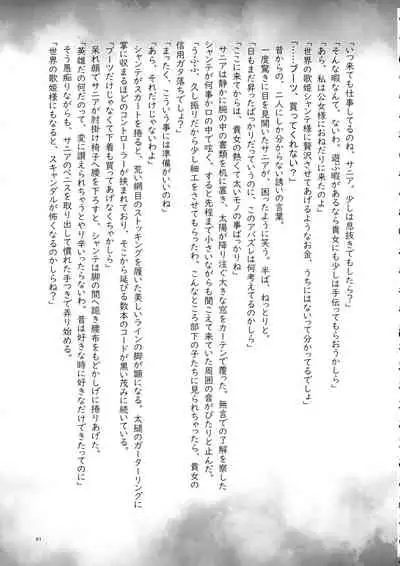 「いつ来ても仕事してるのね、サニア。少しは息抜きでもしたら？」
「そんな暇なんて、ないわ。遊ぶ暇があるなら貴女にも少しは手伝ってもらおうかしら」
「あら、私は公女様におねだりに来たのよ」
「世界の歌姫シャンテ様に贅沢させてあげるようなお金、うちにはないって分かってるでしょ」
「……ブーツ、買ってくれない？」
昔からの、二人にしか分からない誘いの言葉。
一度驚きに目を見開いたサニアが、困ったように笑う。半ば、ねっとりと。
「日もまだ昇ったばかりだっていうのに、このアバズレは何考えてるのかしら」
「ここに来てからは、貴女の熱くて太いモノの事ばっかりね」
サニアは静かに腕の中の書類を机に置き、太陽が降り注ぐ大きな窓をカーテンで覆った。無言での了解を察した
シャンテが何事か口の中で呟く。すると先程まで小さいながらも聞こえて来ていた周囲の音がぴたりと止んだ。
「うふふ、久し振りだから少し細工をさせてもらったわ。こんなところ部下の子たちに見られちゃったら、貴女の
信用ガタ落ちでしょう」
「まったく、こういう事には準備がいいのね」
「あら、それだけじゃないわよ」
シャンテがスカートを捲ると、荒い網目のストッキングを履いた美しいラインの脚が顔になる。太腿のガーターリングに
掌に収まるほどのコントローラーが挟まれており、そこから延びる数本のコードが黒い茂みに続いている。
「ブーツだけじゃなくて下着も買ってあげなくちゃかしら」
呆れ顔でサニアが肘掛け椅子へ腰を下ろすと、シャンテは脚の間へ跪き腰布をもどかしげに捲りあげた。
「英雄だの何だのって、変に讃えられちゃうとやり辛いったらないわ。昔は好きな時に好きなだけできたってのに」
そう愚痴りながらも、サニアのペニスを取り出して慣れた手つきで弄り始める。
「世界の歌姫様にもなると、スキャンダルが怖くなるのかしらね？」
81